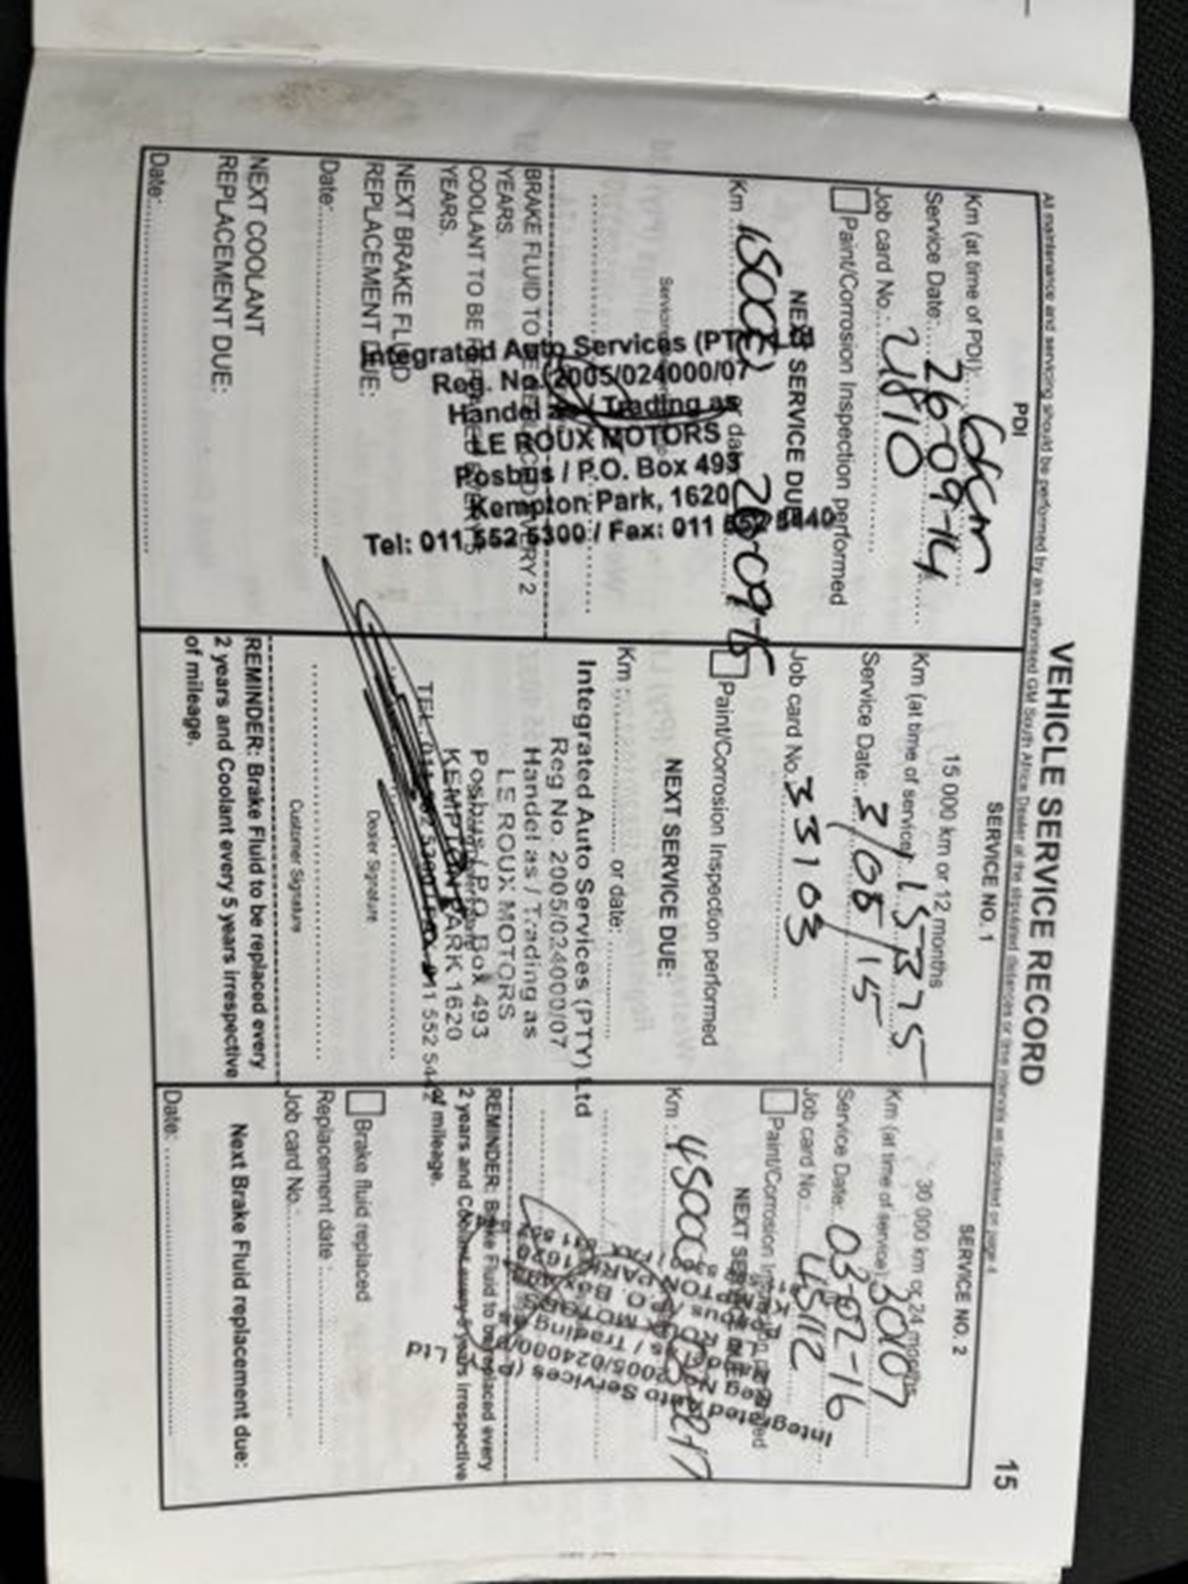 15
VEHICLE SERVICE RECORD
All maintenance and servicing should be performed by an authorised GM South Africa Dealer at the stipulated distances or time intervals as stipulated on page 4
PDI
Km (at time of PDI):
Service Date: 26-09-14
Job card No.: 24810
Paint/Corrosion Inspection performed
NEXT SERVICE DUE
Km 15000 date 26-09-15
Integrated Auto Services (PTY)
Reg. No. 2005/024000/07
Handel as / Trading as
LE ROUX MOTORS
Posbus / P.O. Box 493
Kempton Park, 1620
Tel: 011 552 5300 / Fax: 011 552 5440
BRAKE FLUID TO BE REPLACED EVERY 2
YEARS.
COOLANT TO BE REPLACED EVERY 5
YEARS.
NEXT BRAKE FLUID
REPLACEMENT DUE:
Date:
NEXT COOLANT
REPLACEMENT DUE:
Date:
SERVICE NO. 1
15 000 km or 12 months
Km (at time of service) 15375
Service Date: 3/08/15
Job card No. 33103
Paint/Corrosion Inspection performed
NEXT SERVICE DUE:
Km: or date:
Integrated Auto Services (PTY) Ltd
Reg No. 2005/024000/07
Handel as / Trading as
LE ROUX MOTORS
Posbus / P.O. Box 493
KEMPTON PARK 1620
TEL: 011 552 5300 / FAX 011 552 5442
Dealer Signature
Customer Signature
REMINDER: Brake Fluid to be replaced every
2 years and Coolant every 5 years irrespective
of mileage.
SERVICE NO. 2
30 000 km or 24 months
Km (at time of service): 30007
Service Date: 03-02-16
Job card No.: 45112
Paint/Corrosion Inspection performed
NEXT SERVICE
Km: 45000
Integrated Auto Services (PTY) Ltd
Reg No. 2005/024000/07
Handel as / Trading as
LE ROUX MOTORS
Posbus / P.O. Box 493
KEMPTON PARK 1620
REMINDER: Brake Fluid to be replaced every
2 years and Coolant every 5 years irrespective
of mileage.
Brake fluid replaced
Replacement date:
Job card No.:
Next Brake Fluid replacement due:
Date: